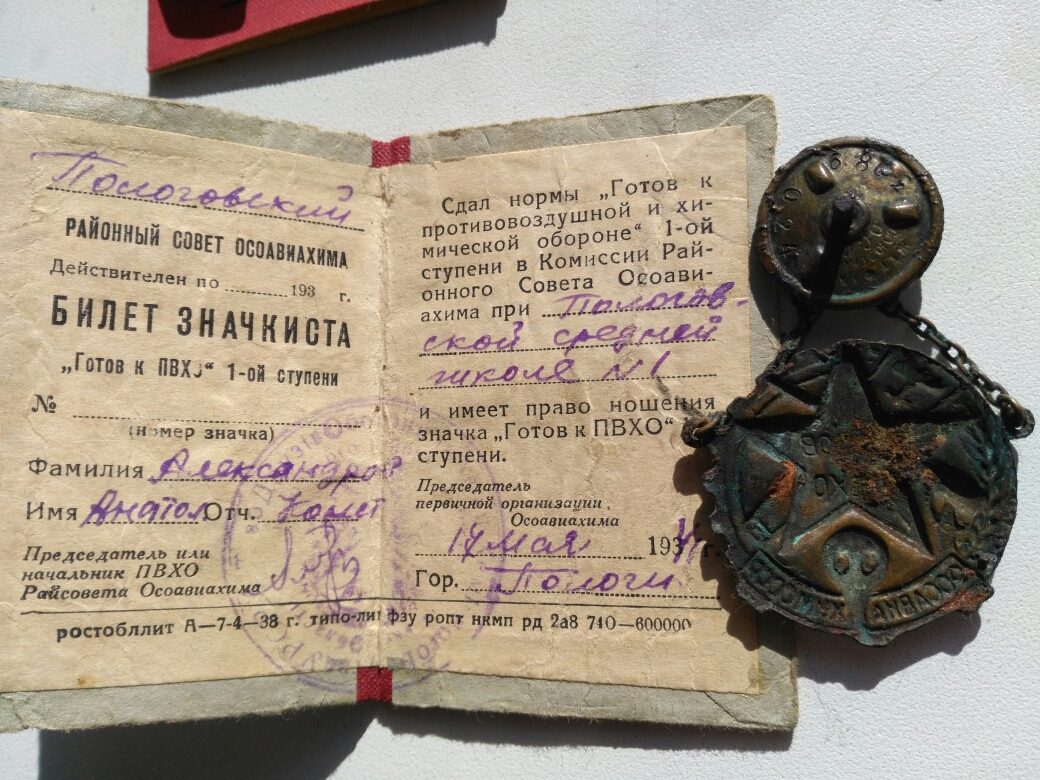 Пологовский
РАЙОННЫЙ СОВЕТ ОСОАВИАХИМА
Действителен по ............193 г.
БИЛЕТ ЗНАЧКИСТА
„Готов к ПВХО“ 1-ой ступени
№
(номер значка)
Фамилия Александров
Имя Анатол Отч.
Председатель или
начальник ПВХО
Райсовета Осоавиахима
Сдал нормы „Готов к
противовоздушной и хи-
мической обороне“ 1-ой
ступени в Комиссии Рай-
онного Совета Осоави-
ахима при Пологов-
ской средней
школе N1
и имеет право ношения
значка „Готов к ПВХО“
ступени.
Председатель
первичной организации
Осоавиахима
14 мая 1941 г.
Гор. Пологи
ростобллит А—7-4—38 г. типо-лит фзу ропт нкмп рд 2а8 740—600000